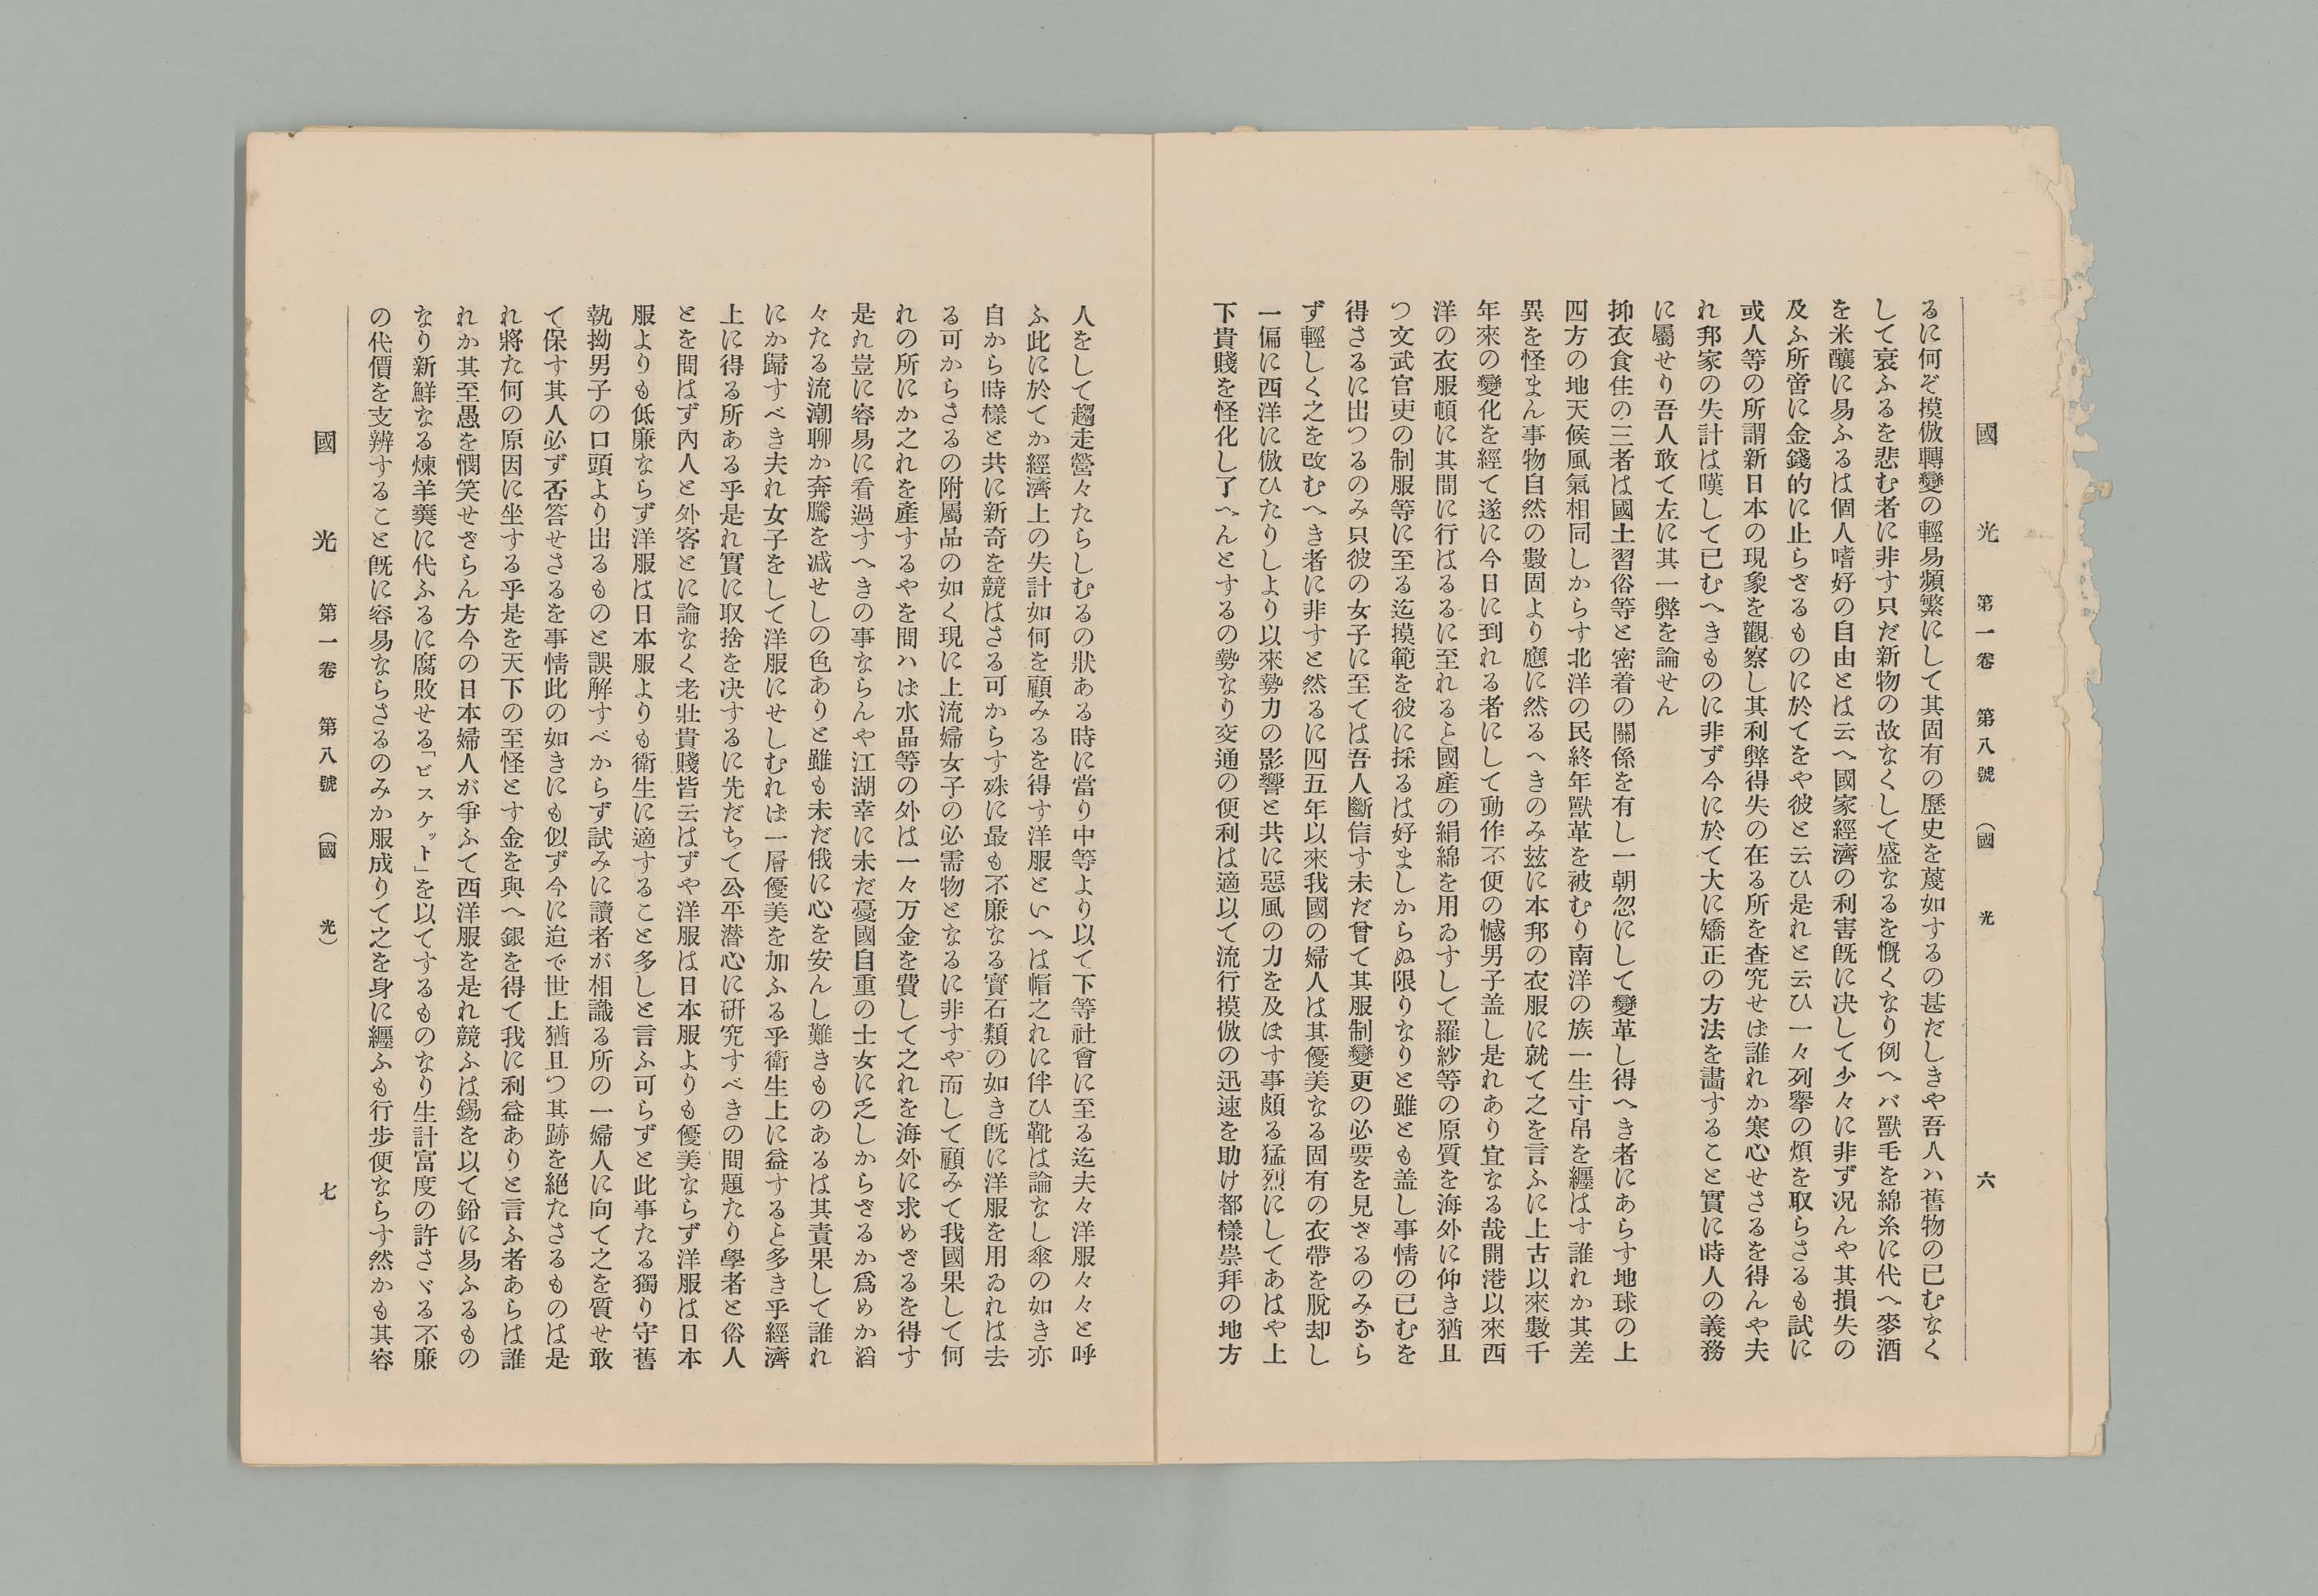 國光 第一卷 第八號 (國光) 六
るに何ぞ摸倣轉變の輕易頻繁にして其固有の歷史を蔑如するの甚だしきや吾人ハ舊物の已むなく
して衰ふるを悲む者に非す只だ新物の故なくして盛なるを慨くなり例へバ獸毛を綿糸に代へ麥酒
を米釀に易ふるは個人嗜好の自由とは云へ國家經濟の利害旣に決して少々に非ず況んや其損失の
及ふ所啻に金錢的に止らさるものに於てをや彼と云ひ是れと云ひ一々列擧の煩を取らさるも試に
或人等の所謂新日本の現象を觀察し其利弊得失の在る所を查究せは誰れか寒心せさるを得んや夫
れ邦家の失計は嘆して已むへきものに非ず今に於て大に矯正の方法を畵すること實に時人の義務
に屬せり吾人敢て左に其一弊を論せん
抑衣食住の三者は國土習俗等と密着の關係を有し一朝忽にして變革し得へき者にあらす地球の上
四方の地天候風氣相同しからす北洋の民終年獸革を被むり南洋の族一生寸帛を纒はす誰れか其差
異を怪まん事物自然の數固より應に然るへきのみ玆に本邦の衣服に就て之を言ふに上古以來數千
年來の變化を經て遂に今日に到れる者にして動作不便の憾男子盖し是れあり宜なる哉開港以來西
洋の衣服頓に其間に行はるるに至れると國產の絹綿を用ゐすして羅紗等の原質を海外に仰き猶且
つ文武官吏の制服等に至る迄摸範を彼に採るは好ましからぬ限りなりと雖とも盖し事情の已むを
得さるに出つるのみ只彼の女子に至ては吾人斷信す未だ曾て其服制變更の必要を見ざるのみなら
ず輕しく之を改むへき者に非すと然るに四五年以來我國の婦人は其優美なる固有の衣帶を脫却し
一偏に西洋に倣ひたりしより以來勢力の影響と共に惡風の力を及ほす事頗る猛烈にしてあはや上
下貴賤を怪化し了へんとするの勢なり交通の便利は適以て流行摸倣の迅速を助け都樣崇拜の地方
人をして趨走營々たらしむるの狀ある時に當り中等より以て下等社會に至る迄夫々洋服々々と呼
ふ此に於てか經濟上の失計如何を顧みるを得す洋服といへは帽之れに伴ひ靴は論なし傘の如き亦
自から時樣と共に新奇を競はさる可からす殊に最も不廉なる寳石類の如き旣に洋服を用ゐれは去
る可からさるの附屬品の如く現に上流婦女子の必需物となるに非すや而して顧みて我國果して何
れの所にか之れを產するやを問ハは水晶等の外は一々万金を費して之れを海外に求めざるを得す
是れ豈に容易に看過すへきの事ならんや江湖幸に未だ憂國自重の士女に乏しからざるか爲めか滔
々たる流潮聊か奔騰を減せしの色ありと雖も未だ俄に心を安んし難きものあるは其責果して誰れ
にか歸すべき夫れ女子をして洋服にせしむれは一層優美を加ふる乎衛生上に益すると多き乎經濟
上に得る所ある乎是れ實に取捨を决するに先だちて公平潜心に硏究すべきの問題たり學者と俗人
とを問はず內人と外客とに論なく老壯貴賤皆云はずや洋服は日本服よりも優美ならず洋服は日本
服よりも低廉ならず洋服は日本服よりも衛生に適すること多しと言ふ可らずと此事たる獨り守舊
執拗男子の口頭より出るものと誤解すべからず試みに讀者が相識る所の一婦人に向て之を質せ敢
て保す其人必ず否答せさるを事情此の如きにも似ず今に迨で世上猶且つ其跡を絕たさるものは是
れ將た何の原因に坐する乎是を天下の至怪とす金を與へ銀を得て我に利益ありと言ふ者あらは誰
れか其至愚を憫笑せざらん方今の日本婦人が爭ふて西洋服を是れ競ふは錫を以て鉛に易ふるもの
なり新鮮なる煉羊羹に代ふるに腐敗せる「ビスケット」を以てするものなり生計富度の許さゞる不廉
の代價を支辨すること旣に容易ならさるのみか服成りて之を身に纒ふも行步便ならす然かも其容
國光 第一卷 第八號 (國光) 七